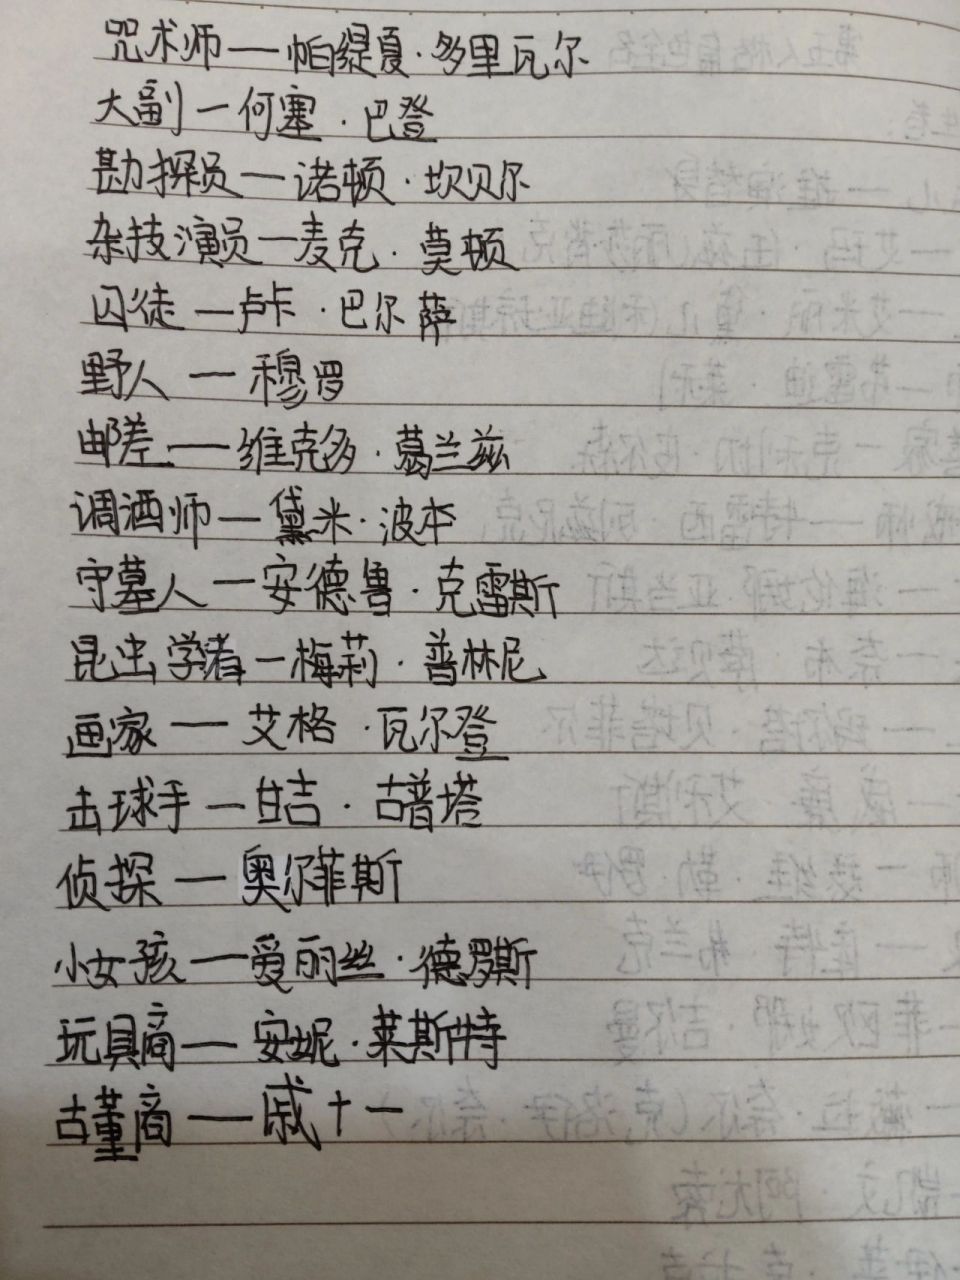 咒术师——帕缇夏·多里瓦尔
大副—何塞·巴登
勘探员—诺顿·坎贝尔
杂技演员—麦克·莫顿
囚徒—卢卡·巴尔萨
野人—穆罗
邮差——维克多·葛兰兹
调酒师—黛米·波本
守墓人—安德鲁·克雷斯
昆虫学者—梅莉·普林尼
画家——艾格·瓦尔登
击球手—甘吉·古普塔
侦探—奥尔菲斯
小女孩—爱丽丝·德罗斯
玩具商——安妮·莱斯特
古董商——戚十一